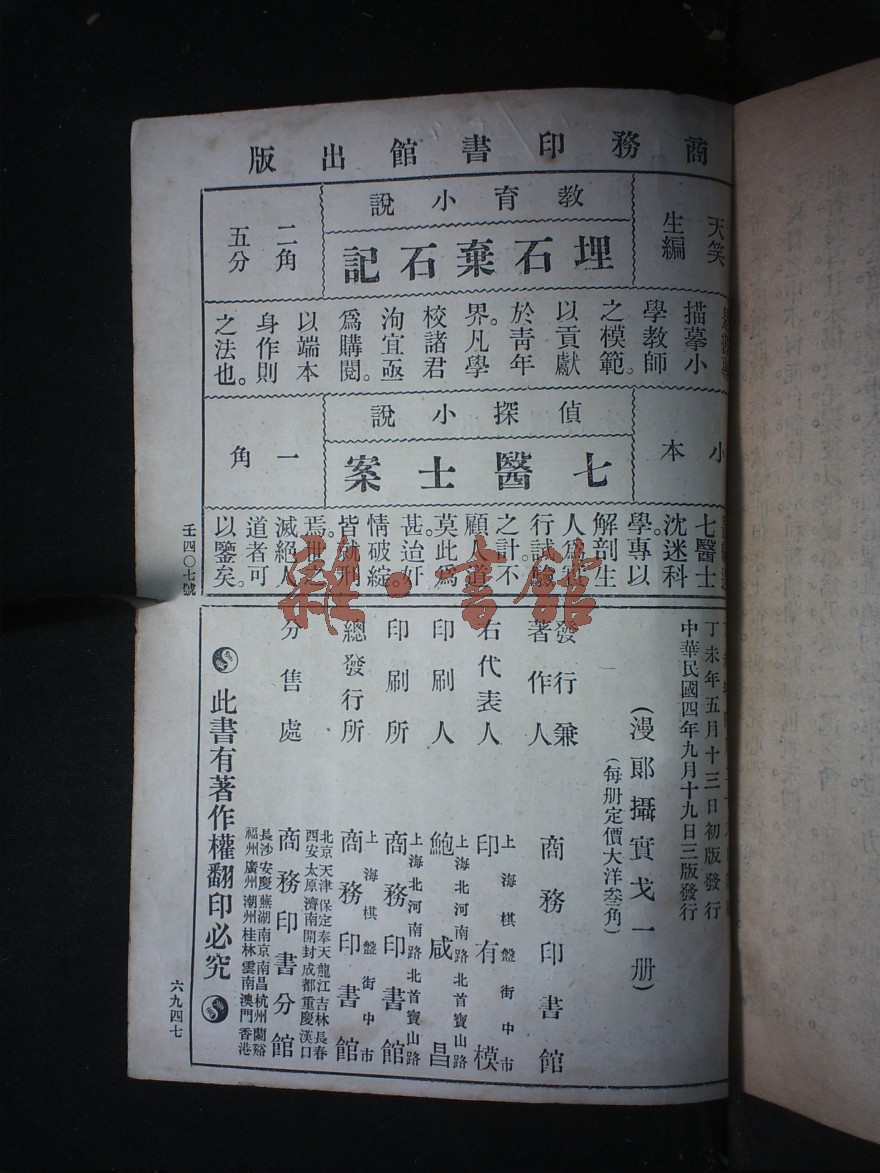 商務印書館出版
天笑
生編
教育小說
埋石棄石記
二角
五分
描摹小
學教師
之模範。
以貢獻
於靑年
界。凡學
校諸君
洵宜亟
爲購閱。
以端本
身作則
之法也。
小本
偵探小說
七醫士案
一角
七醫士
沈迷科
學專以
解剖生
人爲實
行試驗
之計不
顧人道
莫此爲
甚迨奸
情破綻。
皆就刑
焉。世之
滅絕人
道者可
以鑒矣。
壬四〇七號
丁未年五月十三日初版發行
中華民國四年九月十九日三版發行
(漫郎攝實戈一册)
(每册定價大洋叁角)
發行兼
著作人 商務印書館
上海棋盤街中市
右代表人 印有模
上海北河南路北首寶山路
印刷人 鮑咸昌
上海北河南路北首寶山路
印刷所 商務印書館
上海棋盤街中市
總發行所 商務印書館
北京天津保定奉天龍江吉林長春
西安太原濟南開封成都重慶漢口
分售處 商務印書分館
長沙安慶蕪湖南京南昌杭州蘭谿
福州廣州潮州桂林雲南澳門香港
此書有著作權翻印必究
六九四七
雜·書館